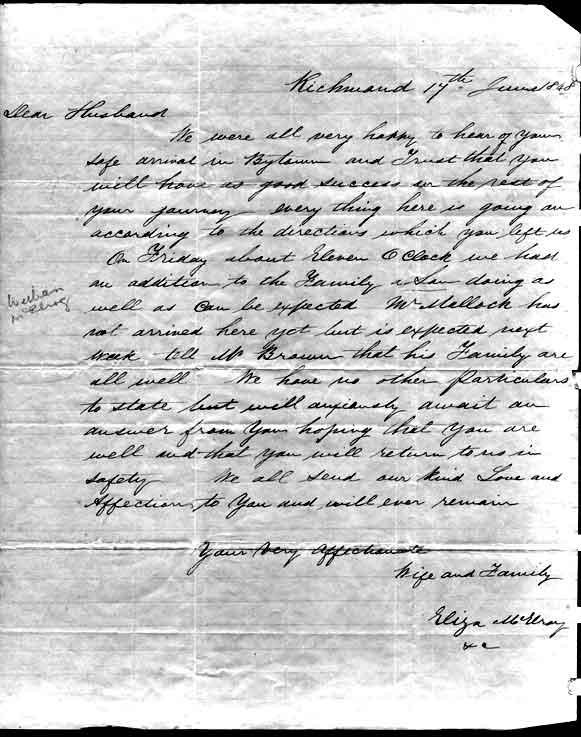 Richmond 17th June 1848
Dear Husband
We were all very happy to hear of your
safe arrival in Bytown and Trust that you
will have as good success in the rest of
your journey every thing here is going on
according to the directions which you left us
On Friday about Eleven O Clock we had
an addition to the Family & I am doing as
well as can be expected Mr Malloch has
not arrived here yet but is expected next
week tell Mr Brown that his Family are
all well We have no other Particulars
to state but will anxiously await an
answer from You hoping that You are
well and that you will return to us in
safety We all send our kind Love and
Affection to You and will ever remain
Your Very Affectionate
Wife and Family
Eliza McElroy
&c
McElroy